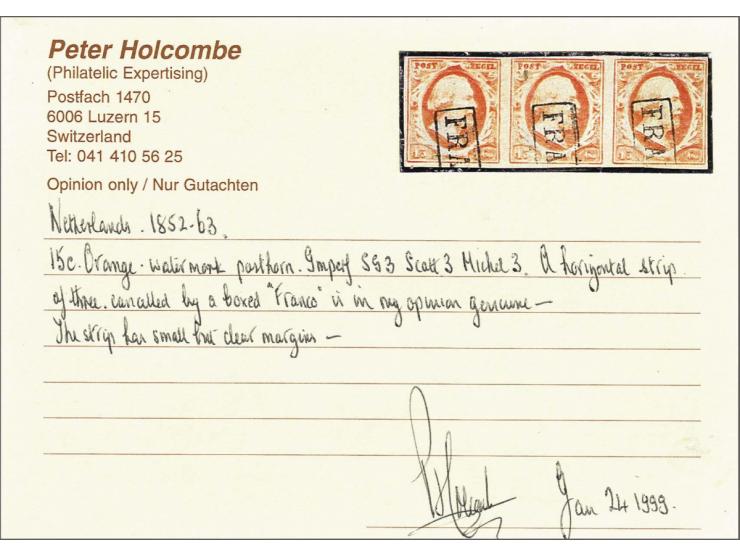 Peter Holcombe
(Philatelic Expertising)
Postfach 1470
6006 Luzern 15
Switzerland
Tel: 041 410 56 25
Opinion only / Nur Gutachten
POST ZEGEL POST ZEGEL POST ZEGEL
FRA FRA FRA
Netherlands. 1852-63.
15c. Orange. watermark posthorn. Imperf SG3 Scott 3 Michel 3. A horizontal strip
of three. cancelled by a boxed "Franco" is in my opinion genuine —
The strip has small but clear margins —
Jan 24 1999.